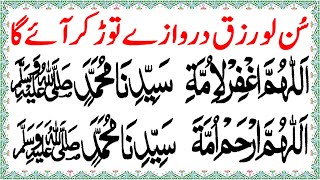 سُن لو رزق دروازے توڑ کر آئے گا
اَللّٰهُمَّ اغْفِرْ لِاُمَّةِ سَيِّدِنَا مُحَمَّدٍ ﷺ
اَللّٰهُمَّ ارْحَمْ اُمَّةَ سَيِّدِنَا مُحَمَّدٍ ﷺ